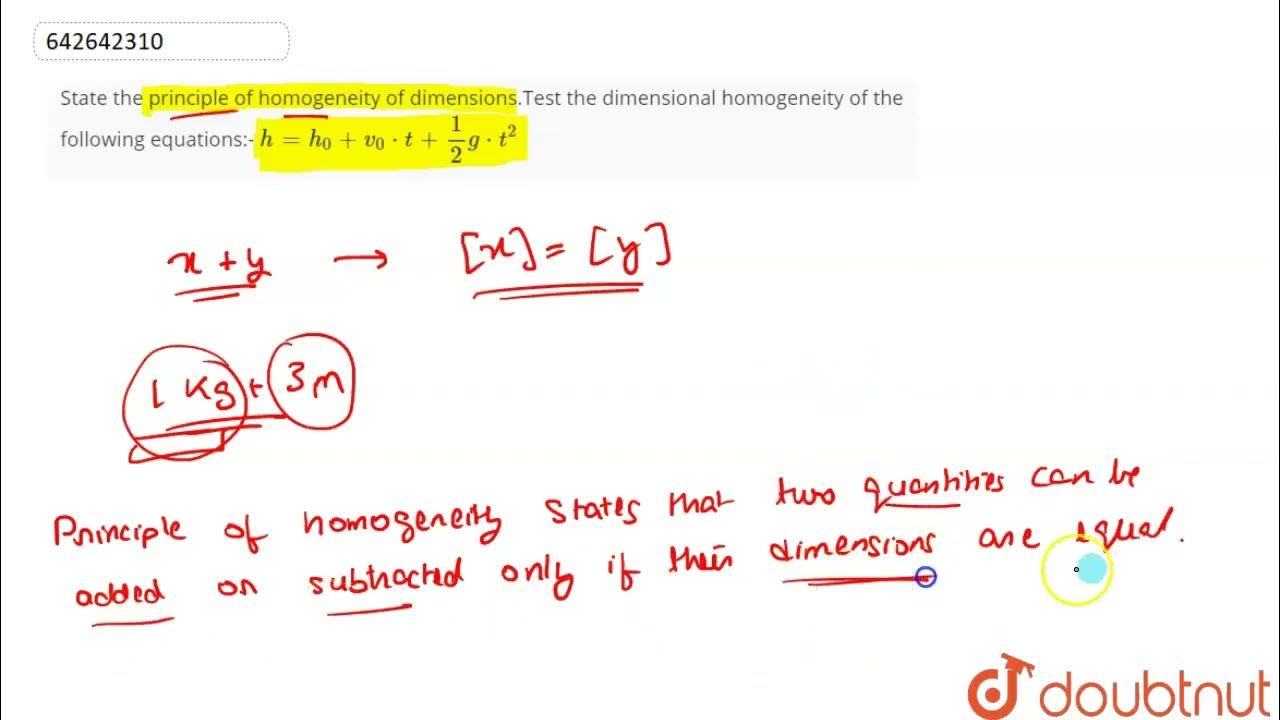 642642310
State the principle of homogeneity of dimensions.Test the dimensional homogeneity of the
following equations:- h = h₀ + v₀ · t + 1/2 g · t²
x + y → [x] = [y]
1 Kg + 3 m
Principle of homogeneity states that two quantities can be
added or subtracted only if their dimensions are equal.
doubtnut